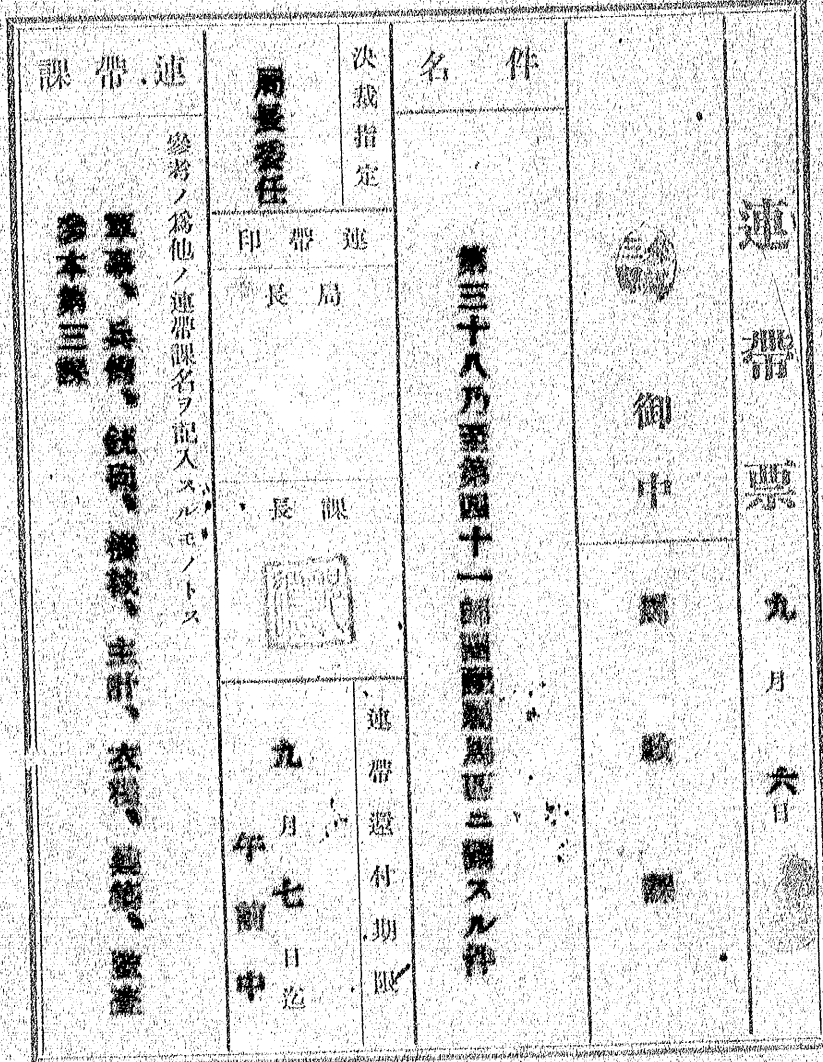 連帶票 九月六日
御中
馬政課
件名
第三十八乃至第四十一師團配屬馬匹ニ關スル件
決裁指定
局長委任
連帶印
局長
課長
連帶還付期限
九月七日迄
午前中
連帶課
參考ノ爲他ノ連帶課名ヲ記入スルモノトス
軍事、兵備、銃砲、機械、主計、衣糧、建築、
參本第三課